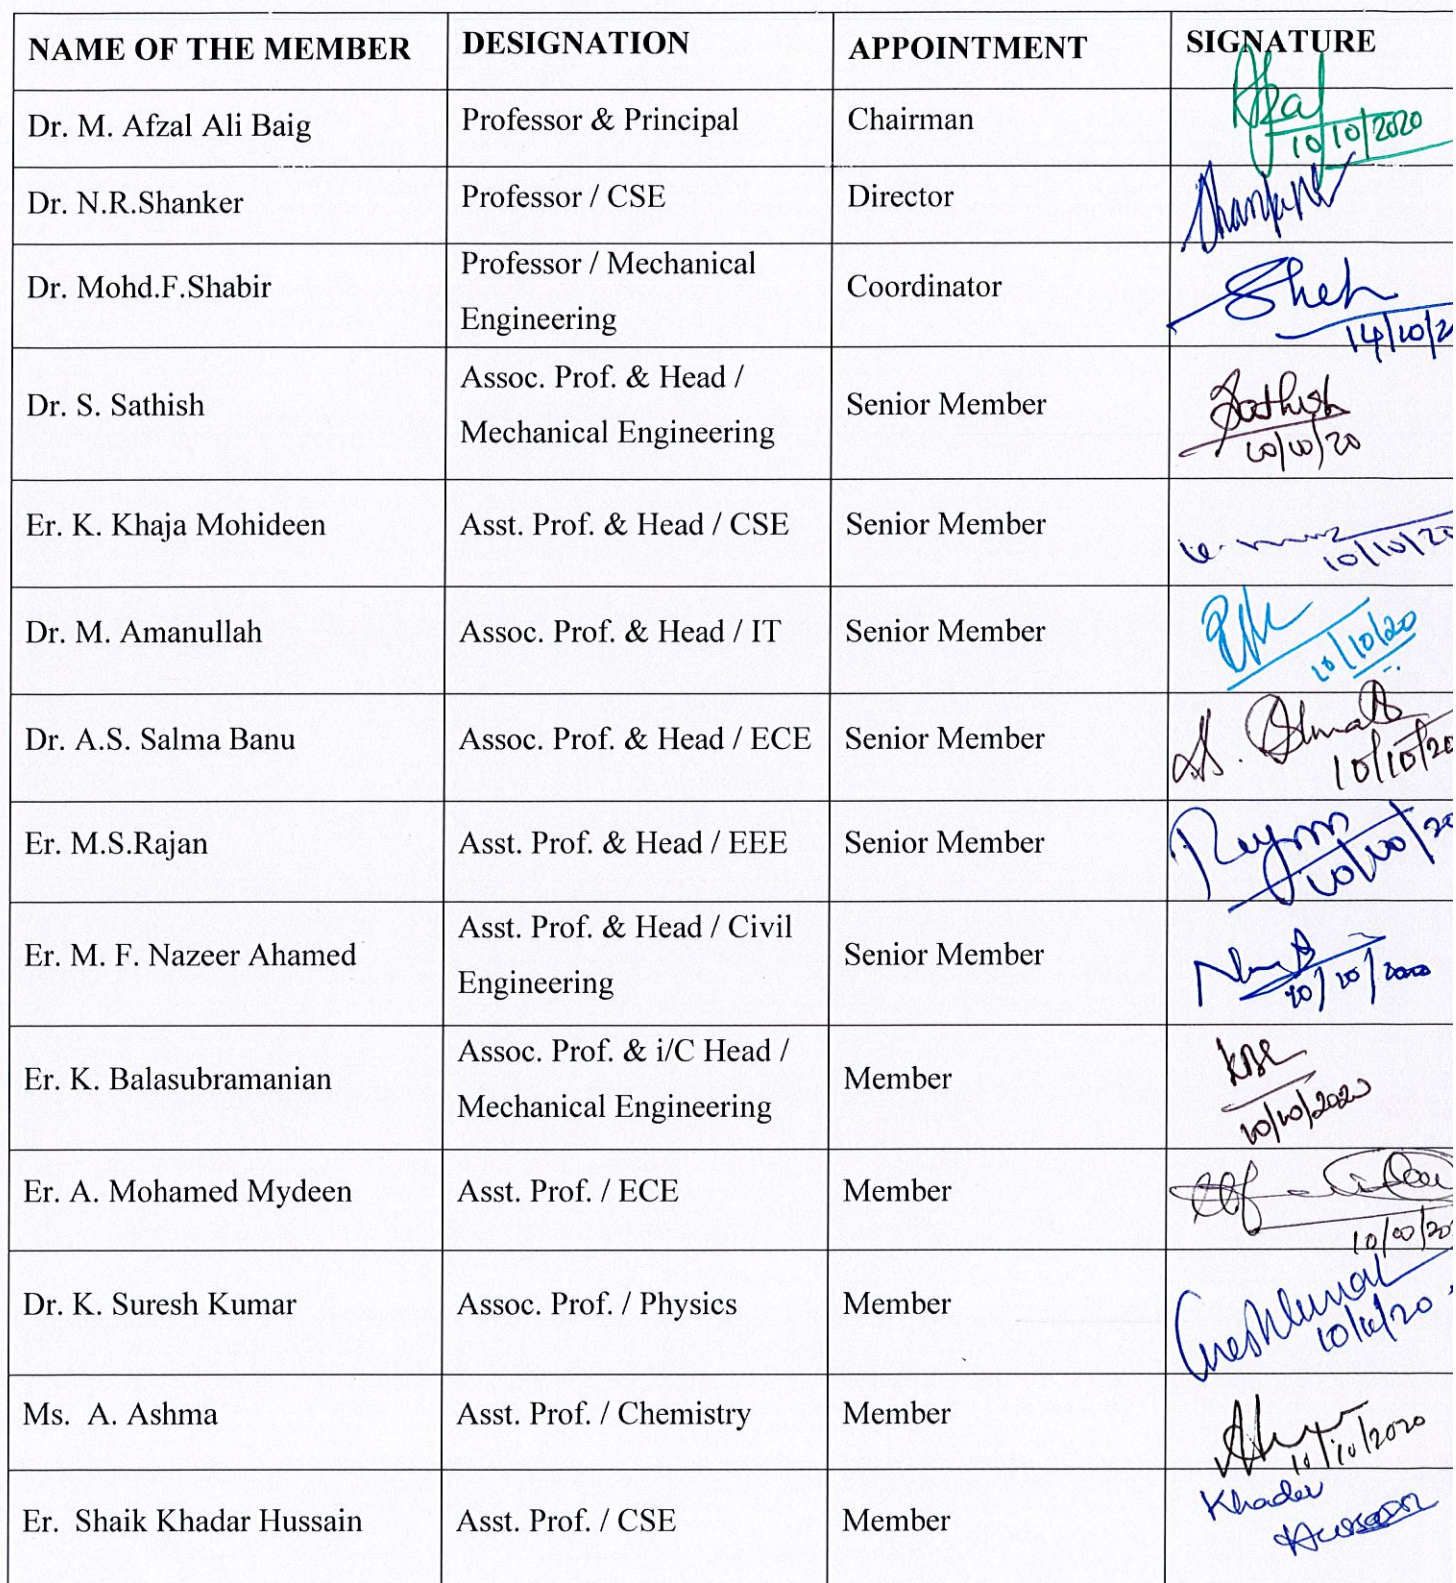 NAME OF THE MEMBER DESIGNATION APPOINTMENT SIGNATURE
Dr. M. Afzal Ali Baig Professor & Principal Chairman
10/10/2020
Dr. N.R.Shanker Professor / CSE Director
Dr. Mohd.F.Shabir Professor / Mechanical Coordinator
Engineering
14/10/2
Dr. S. Sathish Assoc. Prof. & Head / Senior Member Sathish
Mechanical Engineering 10/10/20
Er. K. Khaja Mohideen Asst. Prof. & Head / CSE Senior Member
10/10/20
Dr. M. Amanullah Assoc. Prof. & Head / IT Senior Member
10/10/20
Dr. A.S. Salma Banu Assoc. Prof. & Head / ECE Senior Member
10/10/20
Er. M.S.Rajan Asst. Prof. & Head / EEE Senior Member
10/10/20
Er. M. F. Nazeer Ahamed Asst. Prof. & Head / Civil Senior Member
Engineering 10/10/2020
Er. K. Balasubramanian Assoc. Prof. & i/C Head / Member
Mechanical Engineering 10/10/2020
Er. A. Mohamed Mydeen Asst. Prof. / ECE Member
10/10/20
Dr. K. Suresh Kumar Assoc. Prof. / Physics Member
10/10/20
Ms. A. Ashma Asst. Prof. / Chemistry Member
10/10/2020
Er. Shaik Khadar Hussain Asst. Prof. / CSE Member Khader
Hussain